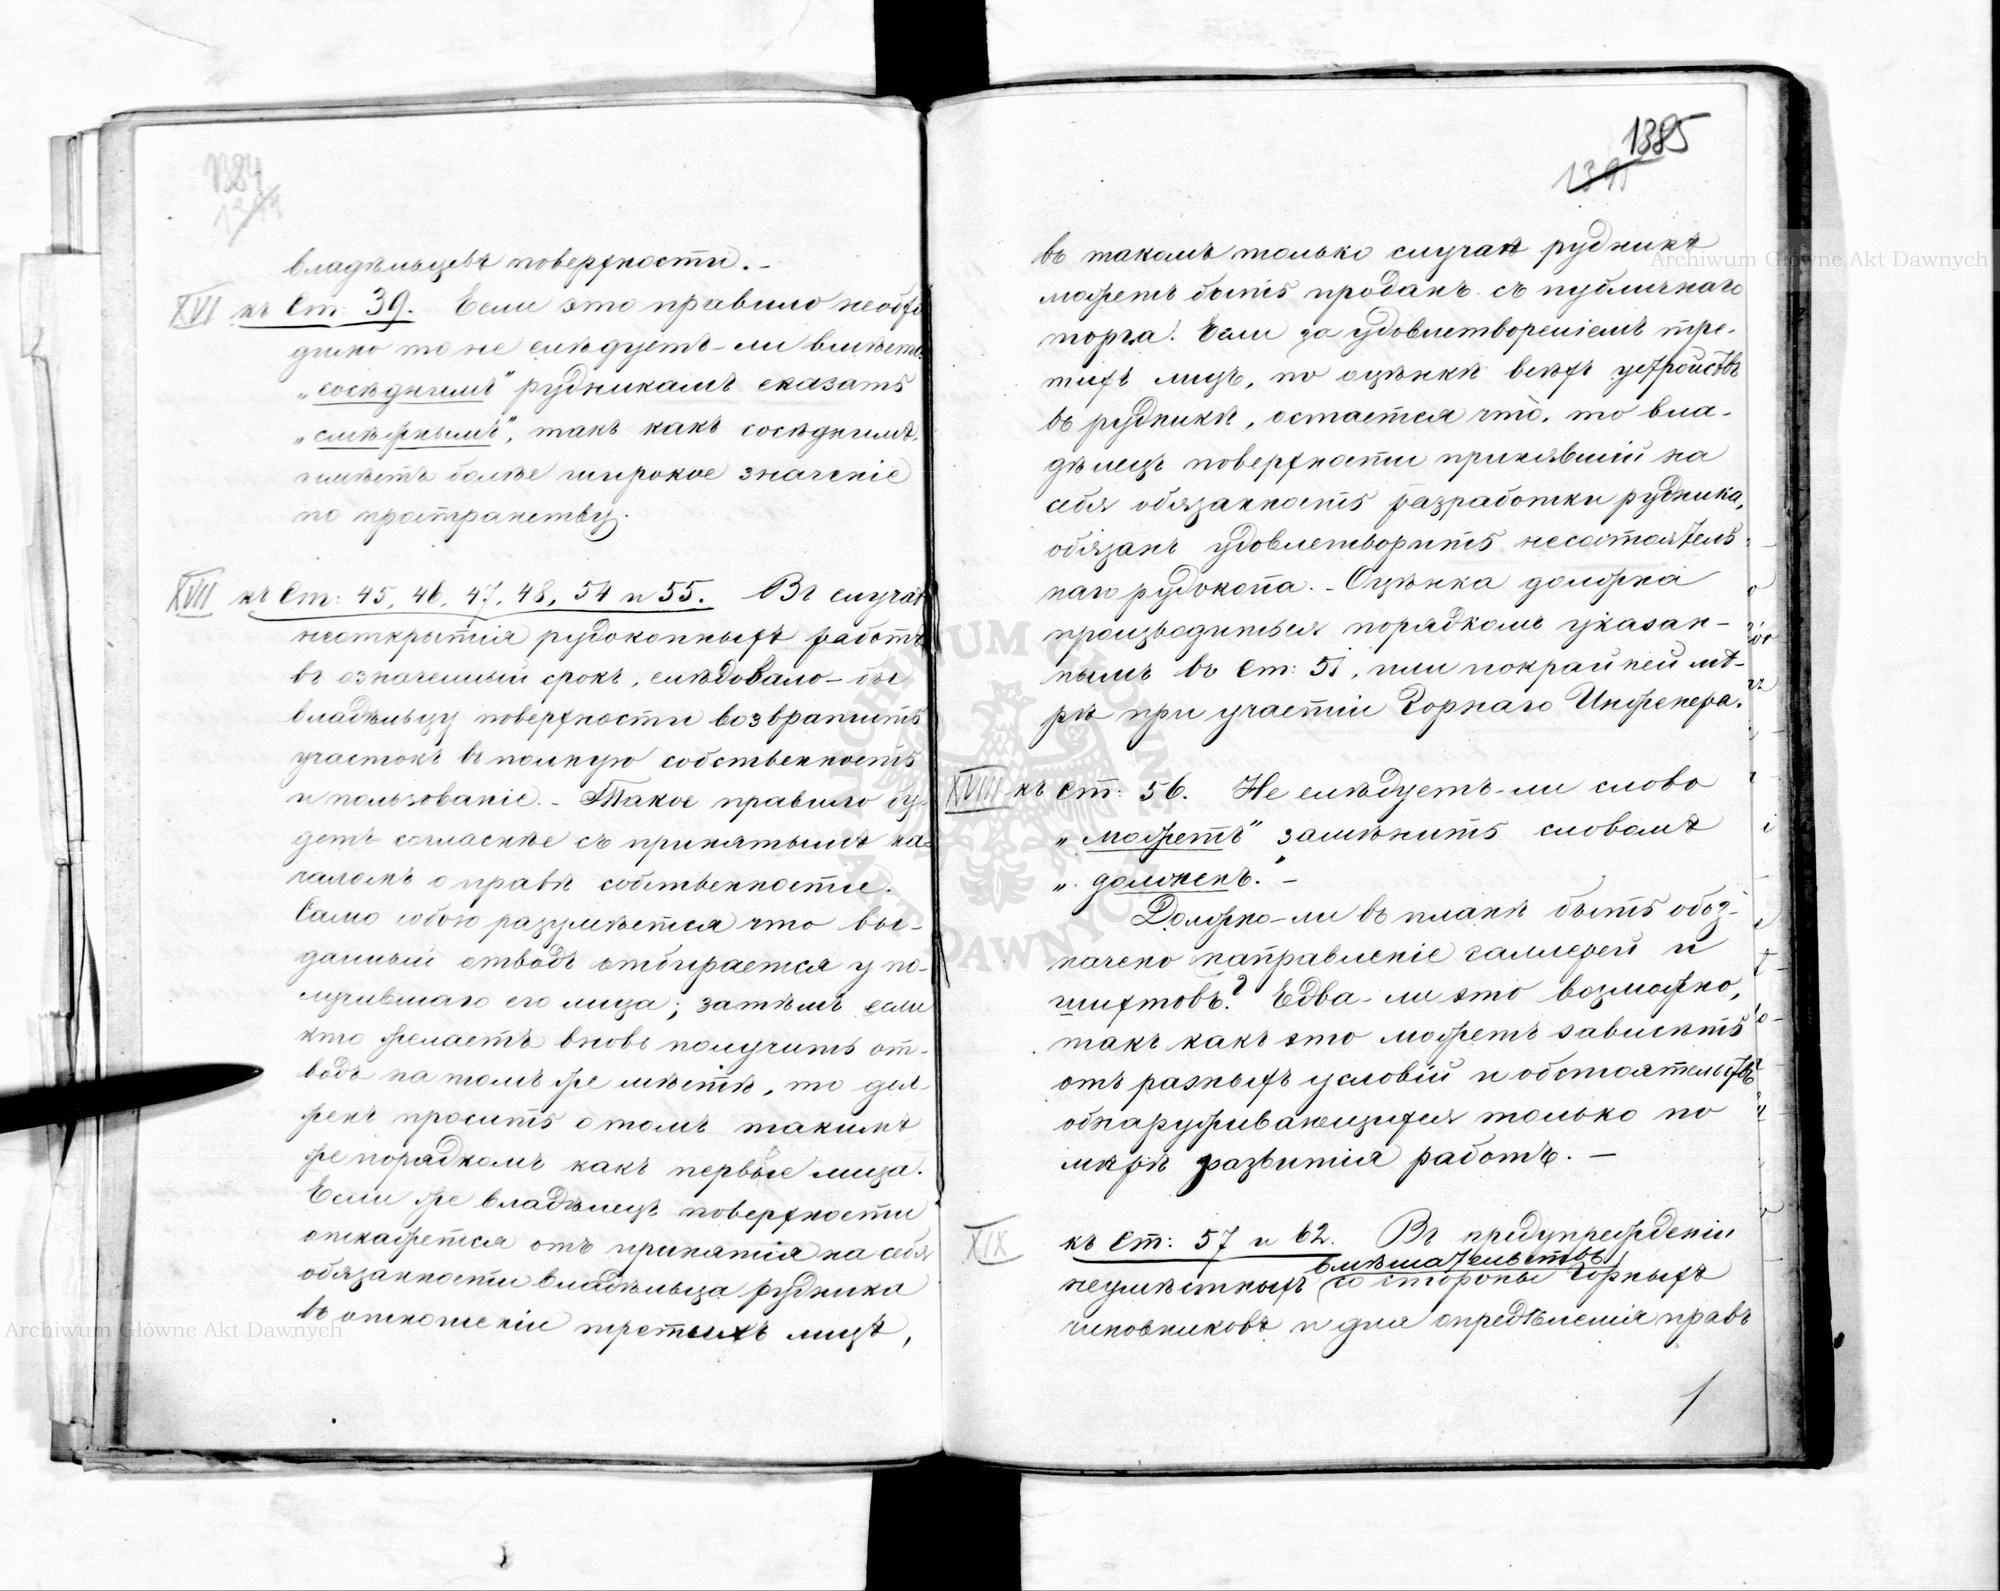 1384
владѣльцевъ поверхности. –
XVI къ Ст: 39. Если это правило необхо
димо то не слѣдуетъ-ли вмѣсто
„сосѣднимъ" рудникамъ сказать
„смѣжнымъ", такъ какъ сосѣднимъ
имѣетъ болѣе широкое значеніе
по пространству.
XVII къ Ст: 45, 46, 47, 48, 54 и 55. Въ случаѣ
неоткрытія рудокопныхъ работъ
въ означенный срокъ, слѣдовало-бы
владѣльцу поверхности возвратить
участокъ въ полную собственность
и пользованіе. – Такое правило бу-
детъ согласнѣе съ принятымъ на-
чаломъ о правѣ собственности.
Само собою разумѣется что вы-
данный отводъ отбирается у по-
лучившаго его лица; затѣмъ если
кто желаетъ вновь получить от-
водъ на томъ же мѣстѣ, то дол-
женъ просить о томъ такимъ
же порядкомъ какъ первые лица.
Если же владѣлецъ поверхности
откажется отъ принятія на себя
обязанности владѣльца рудника
въ отношеніи третьихъ лицъ,
1385
въ такомъ только случаѣ рудникъ
можетъ быть проданъ съ публичнаго
торга. Если за удовлетвореніемъ тре-
тихъ лицъ, по оцѣнкѣ всѣхъ устройствъ
въ рудникѣ, остается что, то вла-
дѣлецъ поверхности принявшій на
себя обязанность разработки рудника,
обязанъ удовлетворить несостоятель
наго рудокопа. – Оцѣнка должна
производиться порядкомъ указан-
нымъ въ Ст: 51, или по крайней мѣ-
рѣ при участіи Горнаго Инженера.
XVIII къ Ст: 56. Не слѣдуетъ-ли слово
„можетъ" замѣнить словомъ
„долженъ." –
Должно-ли въ планѣ быть обоз-
начено направленіе галлерей и
шихтовъ? Едва-ли это возможно,
такъ какъ это можетъ зависѣть
отъ разныхъ условій и обстоятельствъ
обнаруживающихся только по
мѣрѣ развитія работъ. –
XIX къ Ст: 57 и 62. Въ предупрежденіи
вмѣшательствъ
неумѣстныхъ (со стороны Горныхъ
чиновниковъ и для опредѣленія правъ
Archiwum Główne Akt Dawnych
Archiwum Główne Akt Dawnych
ARCHIWUM GŁÓWNE AKT DAWNYCH